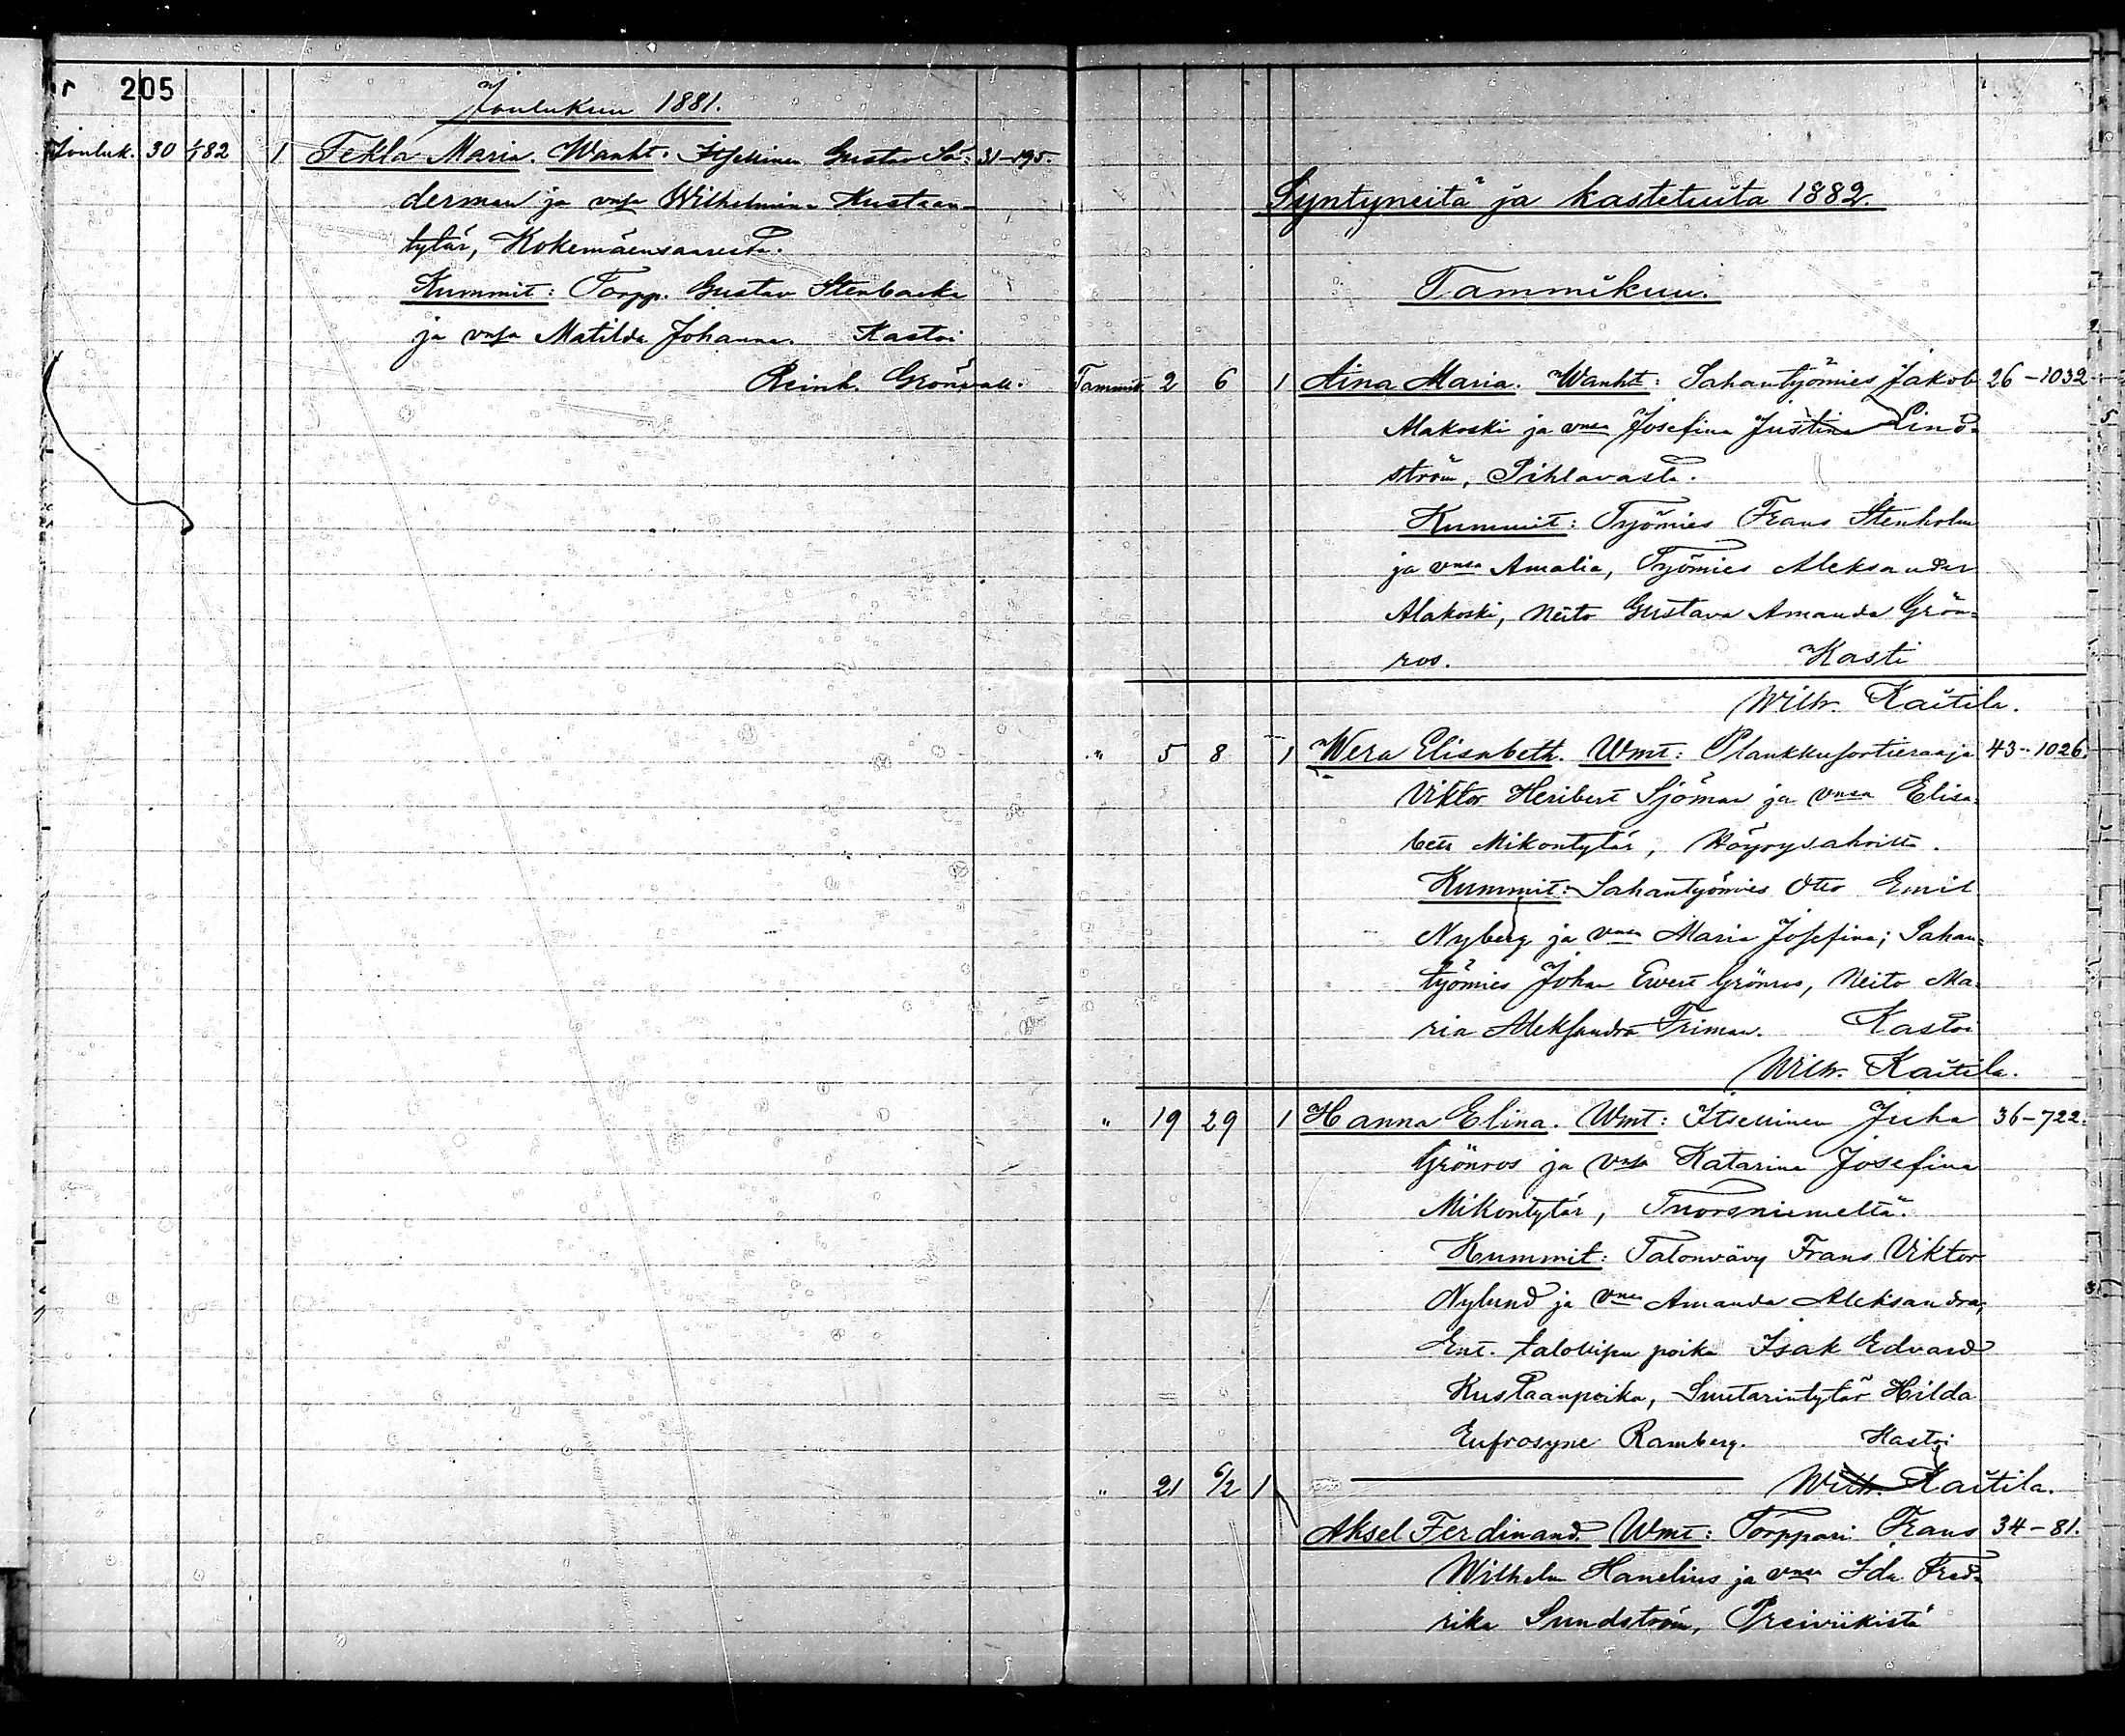 205
Joulukuu 1881.
Jouluk. 30 1/1 82 1 Tekla Maria. Wanht. Itsellinen Gustav Sö= 31-195.
derman ja vmsa Wilhelmina Kustaan-
tytär, Kokemäensaaresta.
Kummit: Torpp. Gustav Stenbacka
ja vmsa Matilda Johanna. Kastoi
Reinh. Grönvall.
Syntyneitä ja kastetuita 1882.
Tammikuu.
Tammik. 2 6 1 Aina Maria. Wanht: Sahantyömies Jakob 26-1032
Alakoski ja vmsa Josefina Justina Lind=
ström, Pihlavasta.
Kummit: Työmies Frans Stenholm
ja vmsa Amalia, Työmies Aleksander
Alakoski, Neito Gustava Amanda Grön=
ros. Kasti
Wilh. Kaitila.
" 5 8 1 Wera Elisabeth. Wmt: Plankkusortieraaja 43-1026.
Viktor Heribert Sjöman ja vmsa Elisa=
beth Mikontytär, Höyrysahoilta.
Kummit: Sahantyömies Otto Emil
Nyberg ja vmsa Maria Josefina; Sahan=
työmies Johan Evert Grönros, Neito Ma=
ria Aleksandra Friman. Kastoi
Wilh. Kaitila.
" 19 29 1 Hanna Elina. Wmt: Itsellinen Juha 36-722.
Grönros ja Vmsa Katarina Josefina
Mikontytär, Tuorsniemeltä.
Kummit: Talonvävy Frans Viktor
Nylund ja Vmsa Amanda Aleksandra,
Ent. talollisen poika Isak Edvard
Kustaanpoika, Suutarintytär Hilda
Eufrosyne Ramberg. Kastoi
" 21 6/2 1 Wilh. Kaitila.
Aksel Ferdinand. Wmt: Torppari Frans 34-81.
Wilhelm Hanelius ja vmsa Ida Fred=
rika Sundström, Preiviikistä